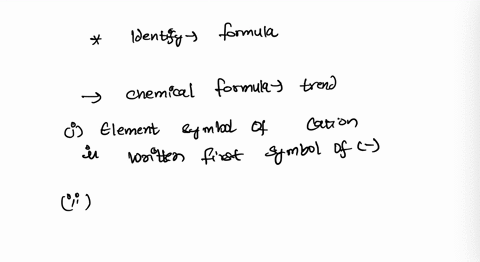 * Identify → formula
→ chemical formula → trend
(i) Element symbol of cation
is written first symbol of (-)
(ii)